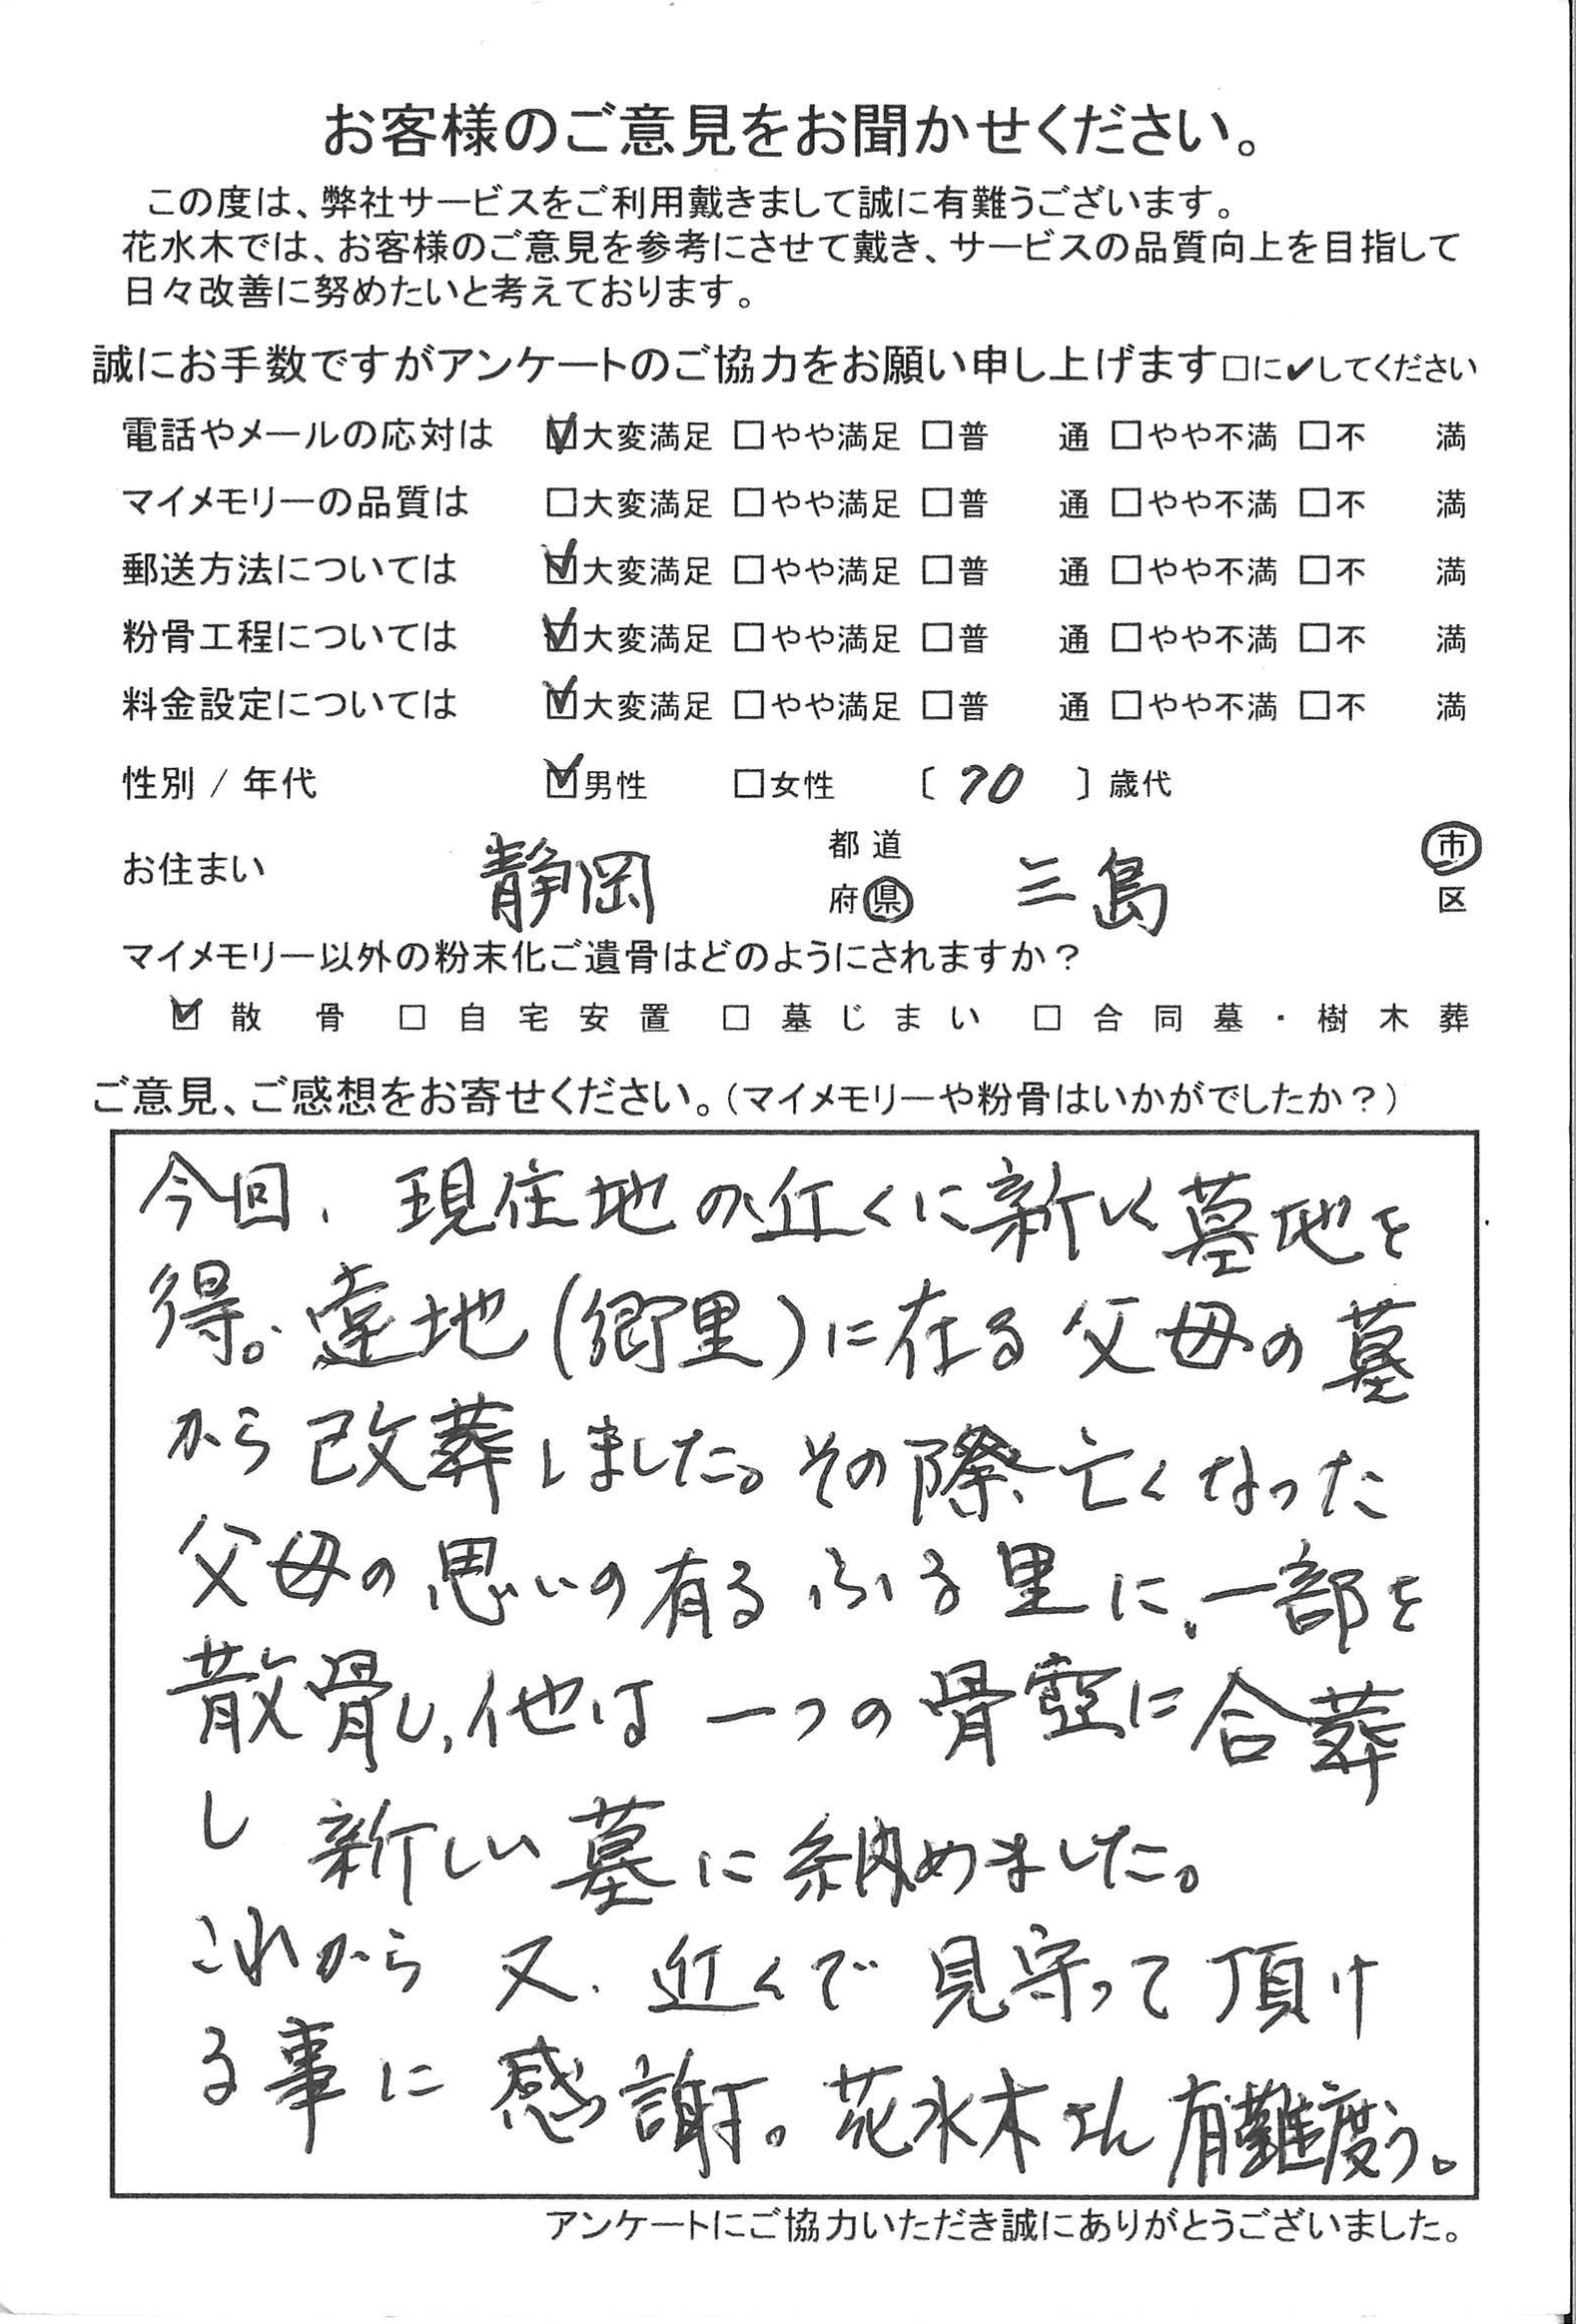 お客様のご意見をお聞かせください。
この度は、弊社サービスをご利用戴きまして誠に有難うございます。
花水木では、お客様のご意見を参考にさせて戴き、サービスの品質向上を目指して
日々改善に努めたいと考えております。
誠にお手数ですがアンケートのご協力をお願い申し上げます□に✔してください
電話やメールの応対は ☑大変満足 □やや満足 □普 通 □やや不満 □不 満
マイメモリーの品質は □大変満足 □やや満足 □普 通 □やや不満 □不 満
郵送方法については ☑大変満足 □やや満足 □普 通 □やや不満 □不 満
粉骨工程については ☑大変満足 □やや満足 □普 通 □やや不満 □不 満
料金設定については ☑大変満足 □やや満足 □普 通 □やや不満 □不 満
性別 / 年代 ☑男性 □女性 〔 70 〕歳代
お住まい 静岡 都道府県 三島 市区
マイメモリー以外の粉末化ご遺骨はどのようにされますか？
☑散骨 □自宅安置 □墓じまい □合同墓・樹木葬
ご意見、ご感想をお寄せください。（マイメモリーや粉骨はいかがでしたか？）
今回、現在地の近くに新しく墓地を
得。遠地(郷里)に在る父母の墓
から改葬しました。その際、亡くなった
父母の思いの有るふる里に、一部を
散骨し、他は一つの骨壺に合葬
し 新しい墓に納めました。
これから又、近くで見守って頂け
る事に感謝。花水木さん有難度う。
アンケートにご協力いただき誠にありがとうございました。